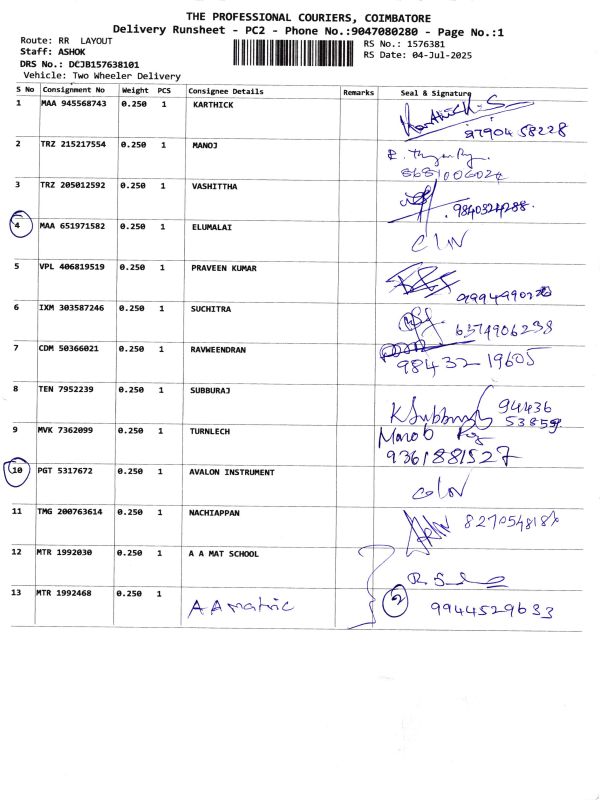 THE PROFESSIONAL COURIERS, COIMBATORE
Delivery Runsheet - PC2 - Phone No.:9047080280 - Page No.:1
Route: RR LAYOUT
RS No.: 1576381
Staff: ASHOK
RS Date: 04-Jul-2025
DRS No.: DCJB157638101
Vehicle: Two Wheeler Delivery
S No Consignment No Weight PCS Consignee Details Remarks Seal & Signature
1 MAA 945568743 0.250 1 KARTHICK Karthick.S
9790458228
2 TRZ 215217554 0.250 1 MANOJ
3 TRZ 205012592 0.250 1 VASHITTHA
9840324288
4 MAA 651971582 0.250 1 ELUMALAI
5 VPL 406819519 0.250 1 PRAVEEN KUMAR
6 IXM 303587246 0.250 1 SUCHITRA 6374906238
7 CDM 50366021 0.250 1 RAVWEENDRAN
98432 19605
8 TEN 7952239 0.250 1 SUBBURAJ
K Subburaj 94436
53859
9 MVK 7362099 0.250 1 TURNLECH
9361881527
10 PGT 5317672 0.250 1 AVALON INSTRUMENT
11 TMG 200763614 0.250 1 NACHIAPPAN
12 MTR 1992030 0.250 1 A A MAT SCHOOL
13 MTR 1992468 0.250 1 A A matric 2 9944529633